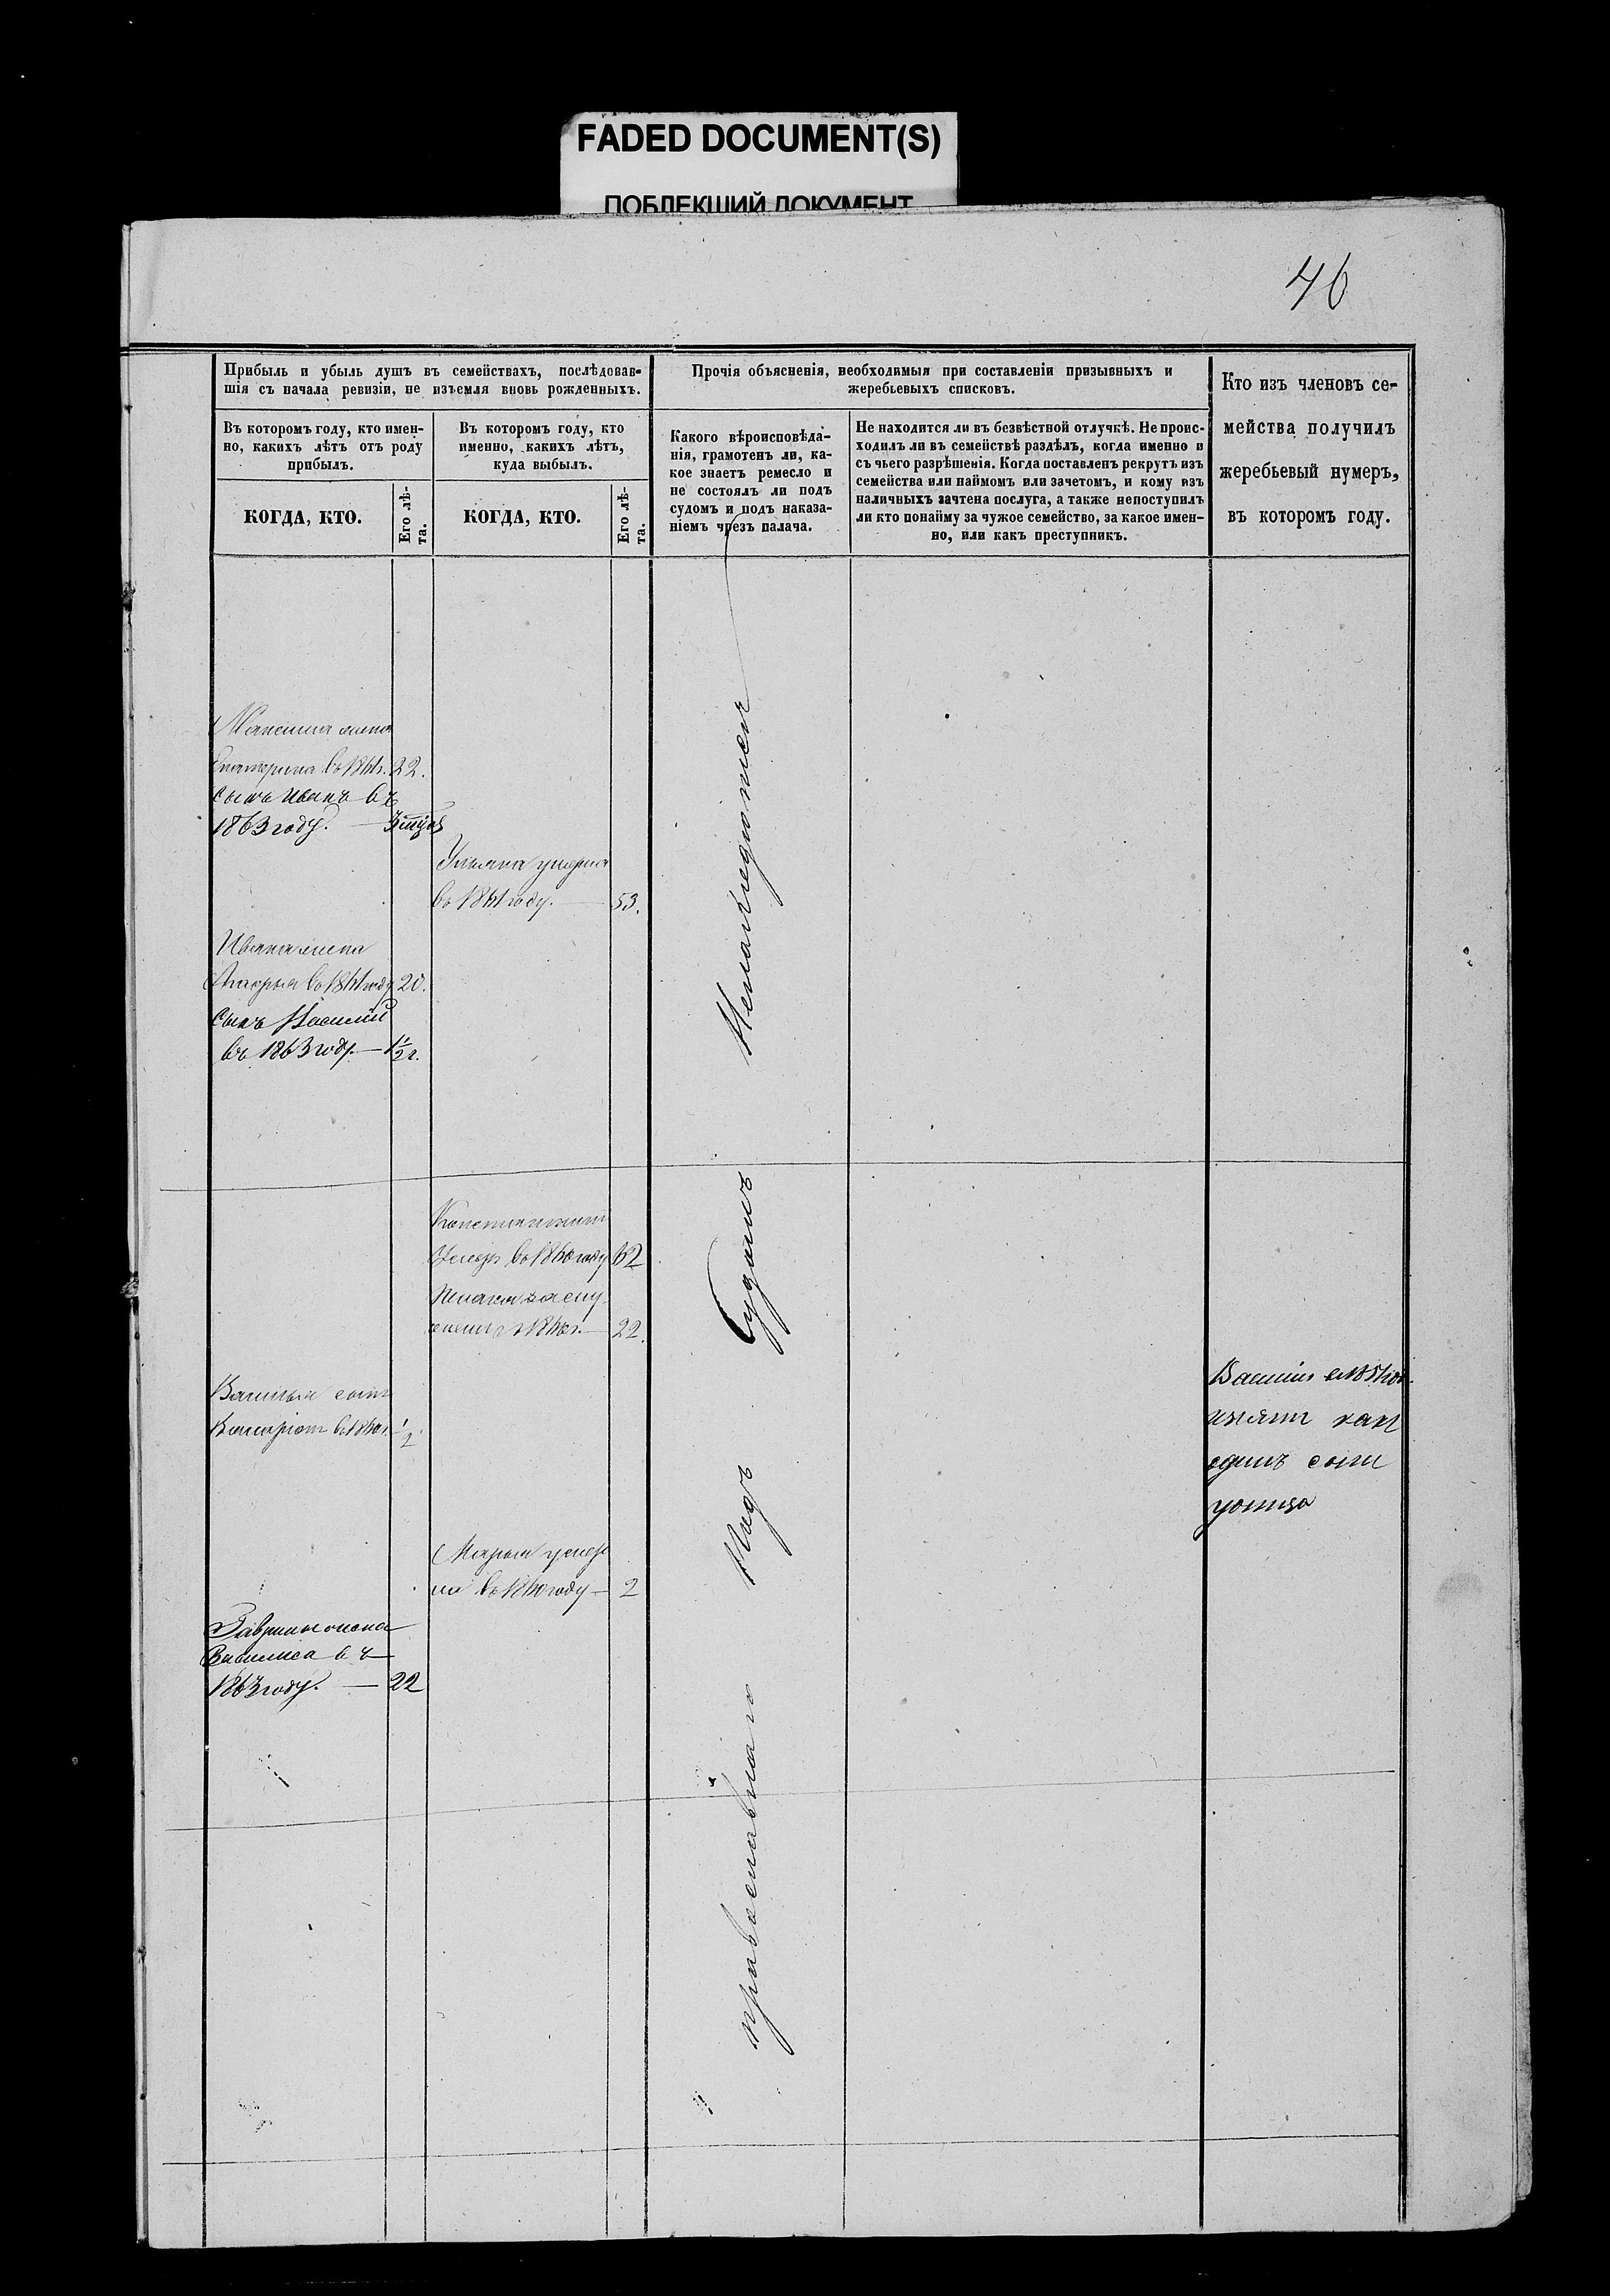 FADED DOCUMENT(S)
ПОБЛЕКШИЙ ДОКУМЕНТ
46
Прибыль и убыль душъ въ семействахъ, послѣдовав-
шія съ начала ревизіи, не изъемля вновь рожденныхъ.
Въ которомъ году, кто имен-
но, какихъ лѣтъ отъ роду
прибылъ.
КОГДА, КТО.
Его лѣ-
та.
Въ которомъ году, кто
именно, какихъ лѣтъ,
куда выбылъ.
КОГДА, КТО.
Его лѣ-
та.
Прочія объясненія, необходимыя при составленіи призывныхъ и
жеребьевыхъ списковъ.
Какого вѣроисповѣда-
нія, грамотенъ ли, ка-
кое знаетъ ремесло и
не состоялъ ли подъ
судомъ и подъ наказа-
ніемъ чрезъ палача.
Не находится ли въ безвѣстной отлучкѣ. Не проис-
ходилъ ли въ семействѣ раздѣлъ, когда именно и
съ чьего разрѣшенія. Когда поставленъ рекрутъ изъ
семейства или наймомъ или зачетомъ, и кому изъ
наличныхъ зачтена послуга, а также непоступилъ
ли кто понайму за чужое семейство, за какое имен-
но, или какъ преступникъ.
Кто изъ членовъ се-
мейства получилъ
жеребьевый нумеръ,
въ которомъ году.
Максима жена
Екатерина въ 1861г. 22.
сынъ Иванъ въ
1863 году.
Ульяна умерла
въ 1861 году. 53.
Ивана жена
въ 1861 году 20.
Сынъ Василій
въ 1863 году. — 1/2 г.
Константинъ
Умеръ въ 1860 году 62
22.
Василья сынъ
въ 1860г. 1/2
Марья умер
ла въ 1860 году — 2
Гаврилы жена
Василиса въ
1863 году. — 22
православнаго
подъ
Судомъ
Василій
какъ
одинъ сынъ
у отца